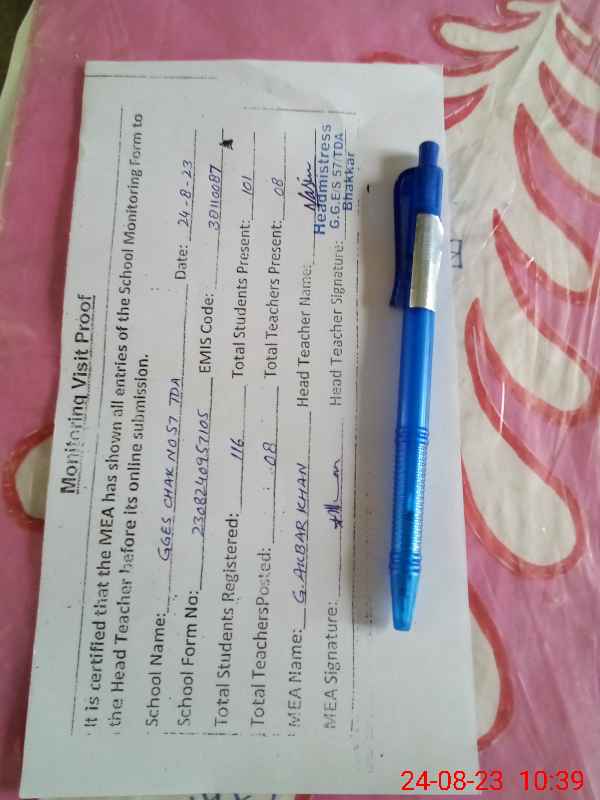 Monitoring Visit Proof
It is certified that the MEA has shown all entries of the School Monitoring Form to
the Head Teacher before its online submission.
School Name: GGES CHAK NO 57 TDA Date: 24-8-23
School Form No: 2308240957105 EMIS Code: 30110087
Total Students Registered: 116 Total Students Present: 101
Total TeachersPosted: 08 Total Teachers Present: 08
MEA Name: G. AKBAR KHAN Head Teacher Name:
Headmistress
MEA Signature: Head Teacher Signature: G.G.E/S 57/TDA
Bhakkar
24-08-23 10:39